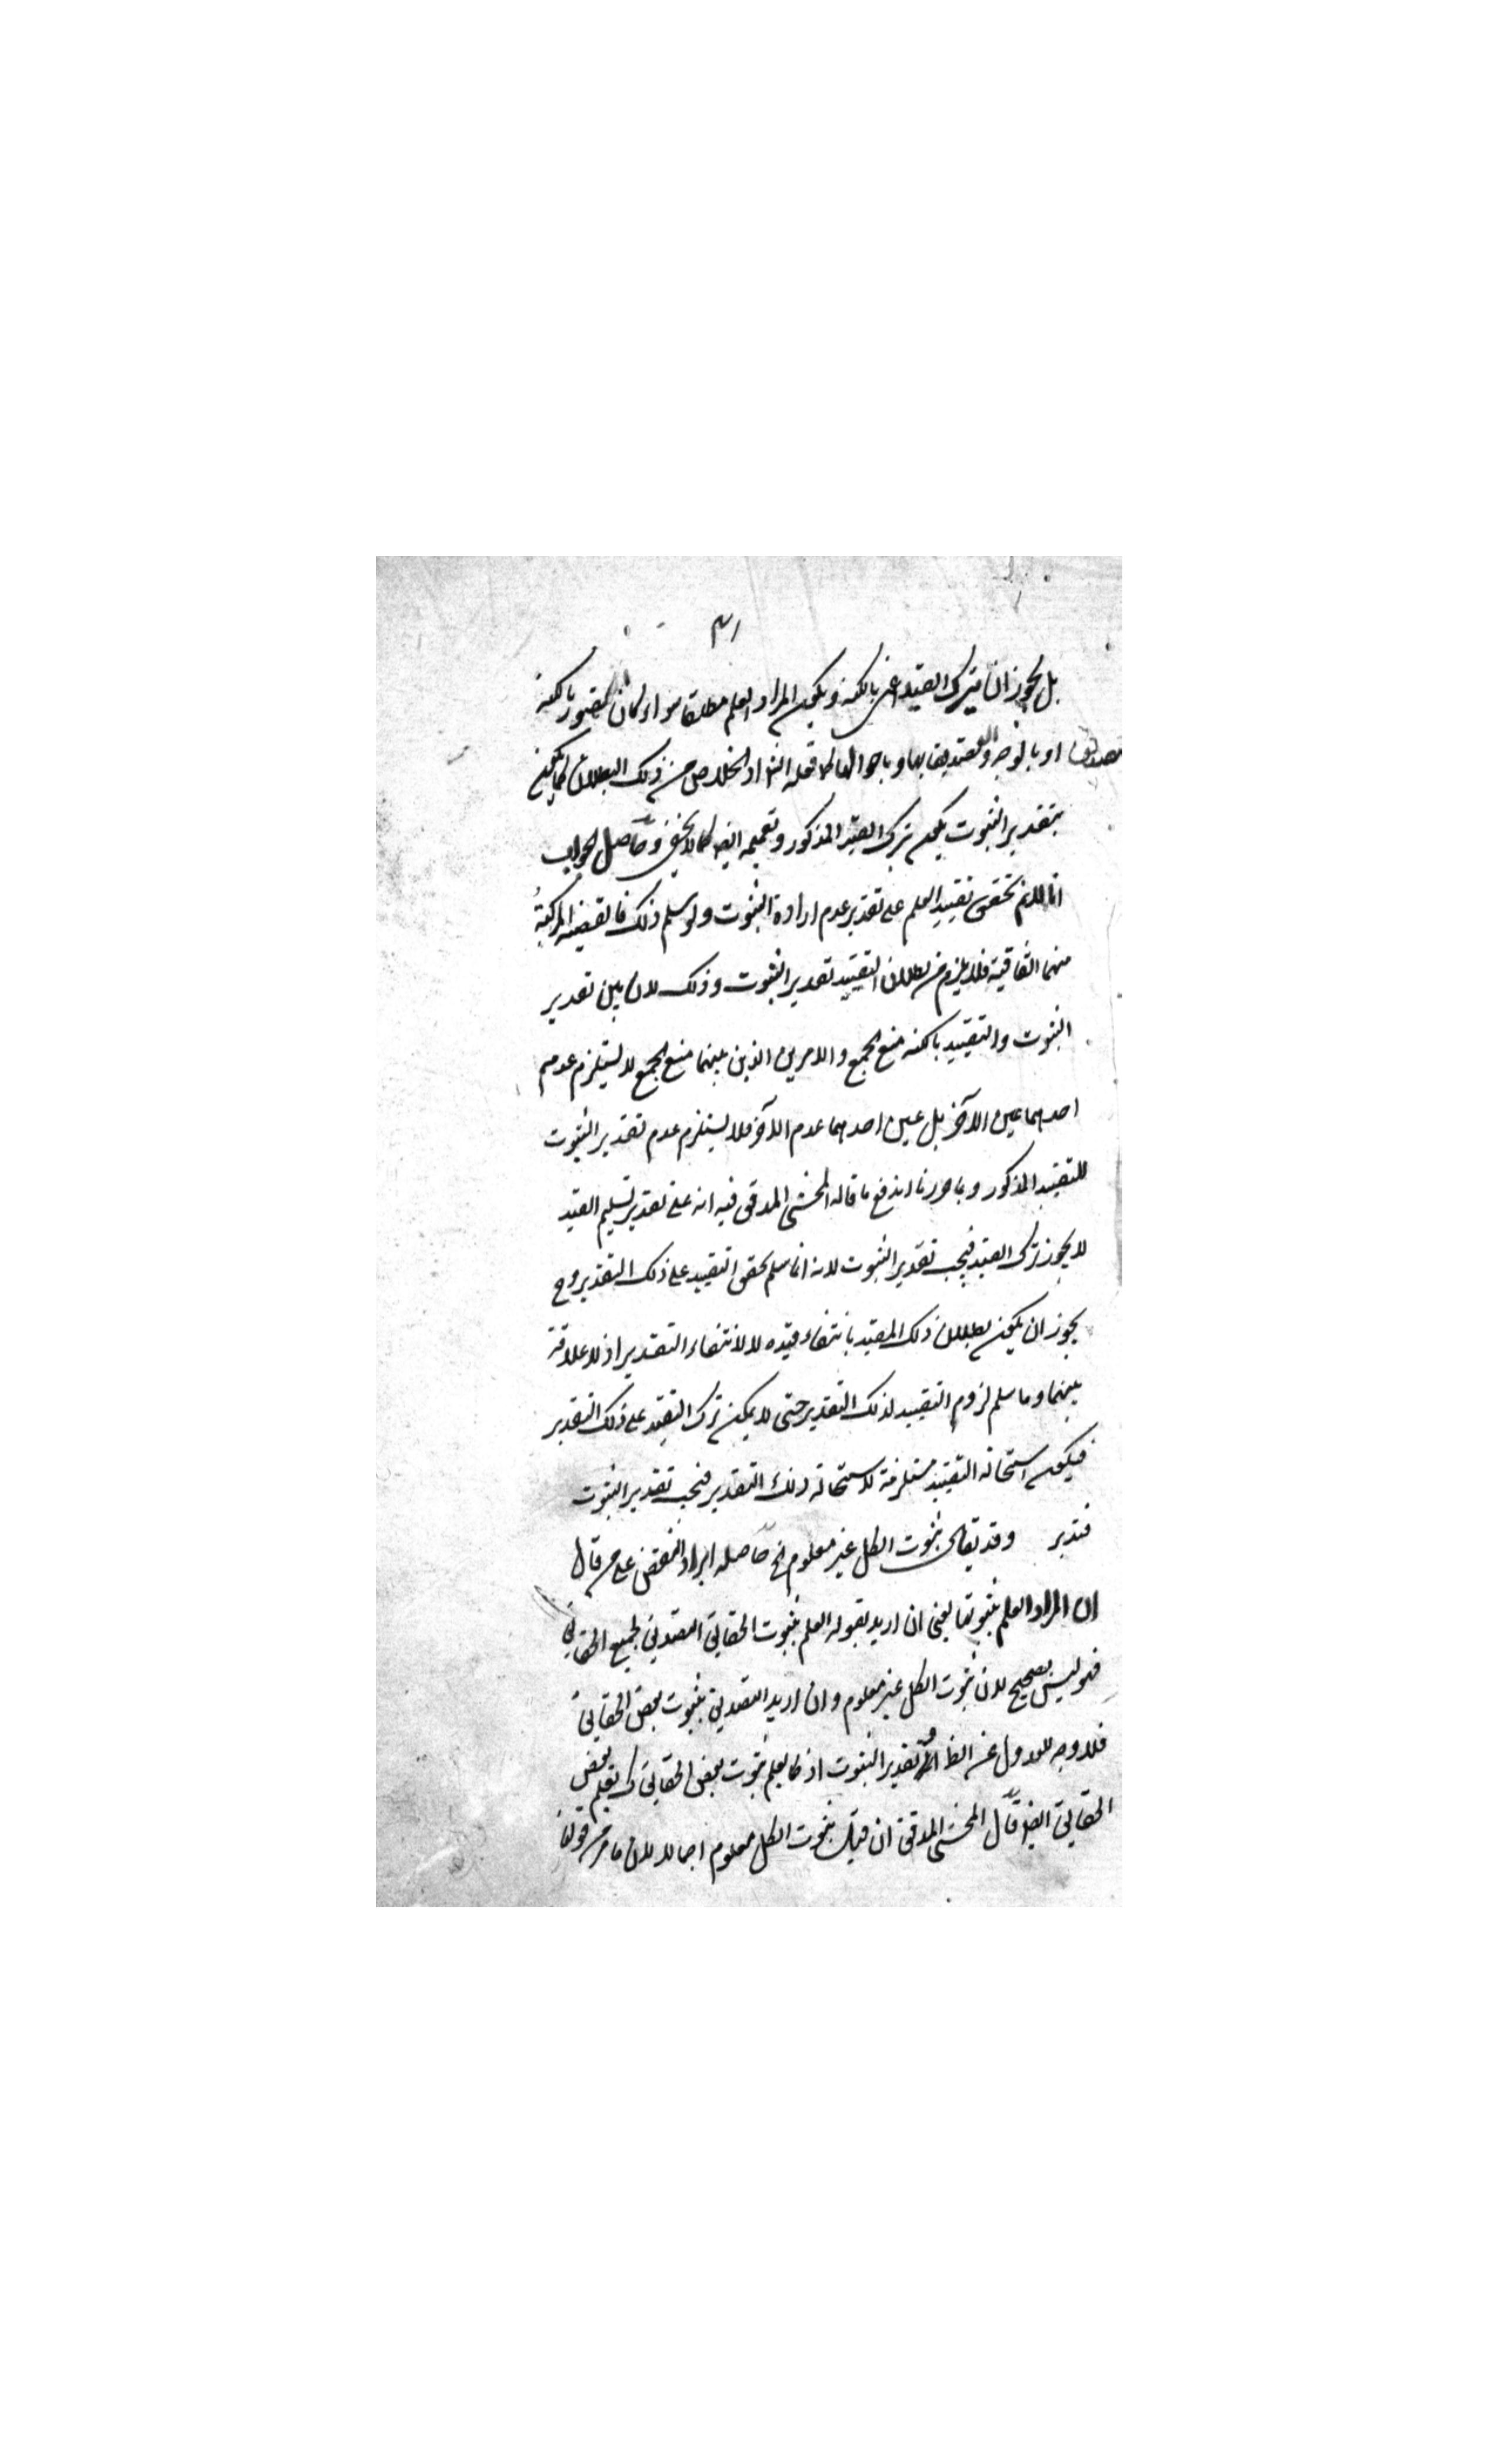 بل يجوز ان يترك القيد اعنى بالكنه ويكون المراد العلم مطلقا سواء كان التصور بالكنه
او بالوجه والتصديق بها وباحوالها كما فعله الش اذ الخلاص من ذلك البطلان كما يمكن
بتقدير الثبوت يمكن بترك القيد المذكور وتعميمه ايض كما لا يخفى وحاصل الجواب
انا لانم تحقق تقييد العلم على تقدير عدم ارادة الثبوت ولو سلم ذلك فالقضية المركبة
منهما اتفاقية فلا يلزم من بطلان التقييد تقدير الثبوت وذلك لان بين تقدير
الثبوت والتقييد بالكنه منع الجمع والامرين الذين بينهما منع الجمع لا يستلزم عدم
احدهما عين الآخر بل عين احدهما عدم الآخر فلا يستلزم عدم تقدير الثبوت
للتقييد المذكور وبما حررنا اندفع ما قاله المحشى المدقق فيه انه على تقدير تسليم القيد
لا يجوز ترك القيد فيجب تقدير الثبوت لانه انما سلم تحقق التقييد على ذلك التقدير وح
يجوز ان يكون بطلان ذلك المقيد بانتفاء قيده لا لانتفاء التقدير اذ لا علاقة
بينهما وما سلم لزوم التقييد لذلك التقدير حتى لا يمكن ترك التقييد على ذلك التقدير
فيكون استحالة التقييد مستلزمة لاستحالة ذلك التقدير فيجب تقدير الثبوت
فتدبر وقد يقال ثبوت الكل غير معلوم الخ حاصله ايراد النقض على من قال
ان المراد العلم بثبوتها يعنى ان اريد بقوله العلم بثبوت الحقايق التصديق لجميع الحقايق
فهو ليس بصحيح لان ثبوت الكل غير معلوم وان اريد التصديق بثبوت بعض الحقايق
فلا وجه للعدول عن الظ وتقدير الثبوت اذ كما يعلم ثبوت بعض الحقايق كك يعلم بعض
الحقايق ايض قال المحشى المدقق ان قيل ثبوت الكل معلوم اجمالا لان ما مر من قولنا